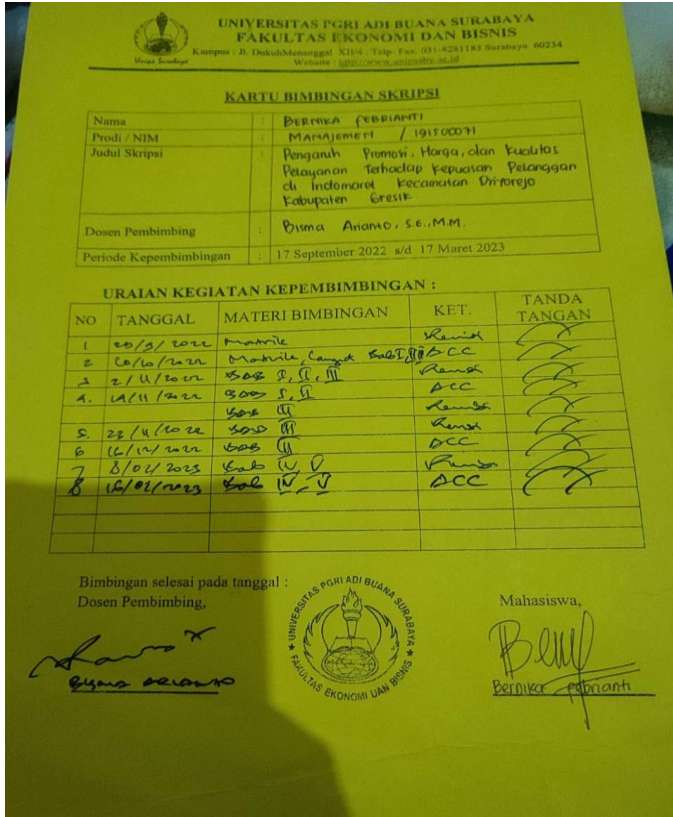 UNIVERSITAS PGRI ADI BUANA SURABAYA
FAKULTAS EKONOMI DAN BISNIS
Kampus : Jl. DukuhMenanggal XII/4 , Telp. Fax. 031-8281183 Surabaya 60234
Website : http://www.unipasby.ac.id
Unipa Surabaya
KARTU BIMBINGAN SKRIPSI
Nama : BERNIKA FEBRIANTI
Prodi / NIM : MANAJEMEN / 191500071
Judul Skripsi : Pengaruh Promosi, Harga, dan Kualitas
Pelayanan Terhadap Kepuasan Pelanggan
di Indomaret Kecamatan Driyorejo
Kabupaten Gresik
Dosen Pembimbing : Bisma Arianto, S.E., M.M.
Periode Kepembimbingan : 17 September 2022 s/d 17 Maret 2023
URAIAN KEGIATAN KEPEMBIMBINGAN :
NO TANGGAL MATERI BIMBINGAN KET. TANDA TANGAN
1 20/9/2022 Matrik Revisi
2 /2022 Matrik, Lanjut Bab I, II ACC
3 2/11/2022 BAB I, II, III Revisi
4. 14/11/2022 BAB I, II ACC
BAB III Revisi
5. 23/11/2022 BAB III Revisi
6 16/12/2022 BAB III ACC
7 8/02/2023 Bab IV, V Revisi
8 16/02/2023 Bab IV, V ACC
Bimbingan selesai pada tanggal :
Dosen Pembimbing,
Mahasiswa,
UNIVERSITAS PGRI ADI BUANA SURABAYA
FAKULTAS EKONOMI DAN BISNIS
BISMA ARIANTO
Bernika Febrianti